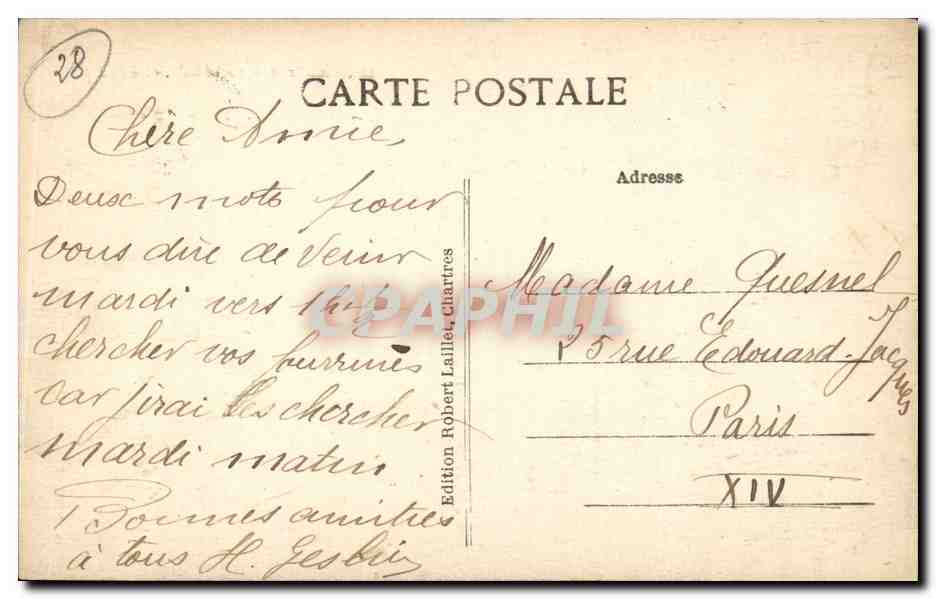 28
CARTE POSTALE
Chère Amie,
Deux mots pour
vous dire de venir
mardi vers
chercher vos
car j'irai les chercher
mardi matin
Bonnes amitiés
à tous H.
Edition Robert Laillet, Chartres
Adresse
Madame Quesnel
25 rue Edouard-Jacques
Paris
XIV
CPAPHIL